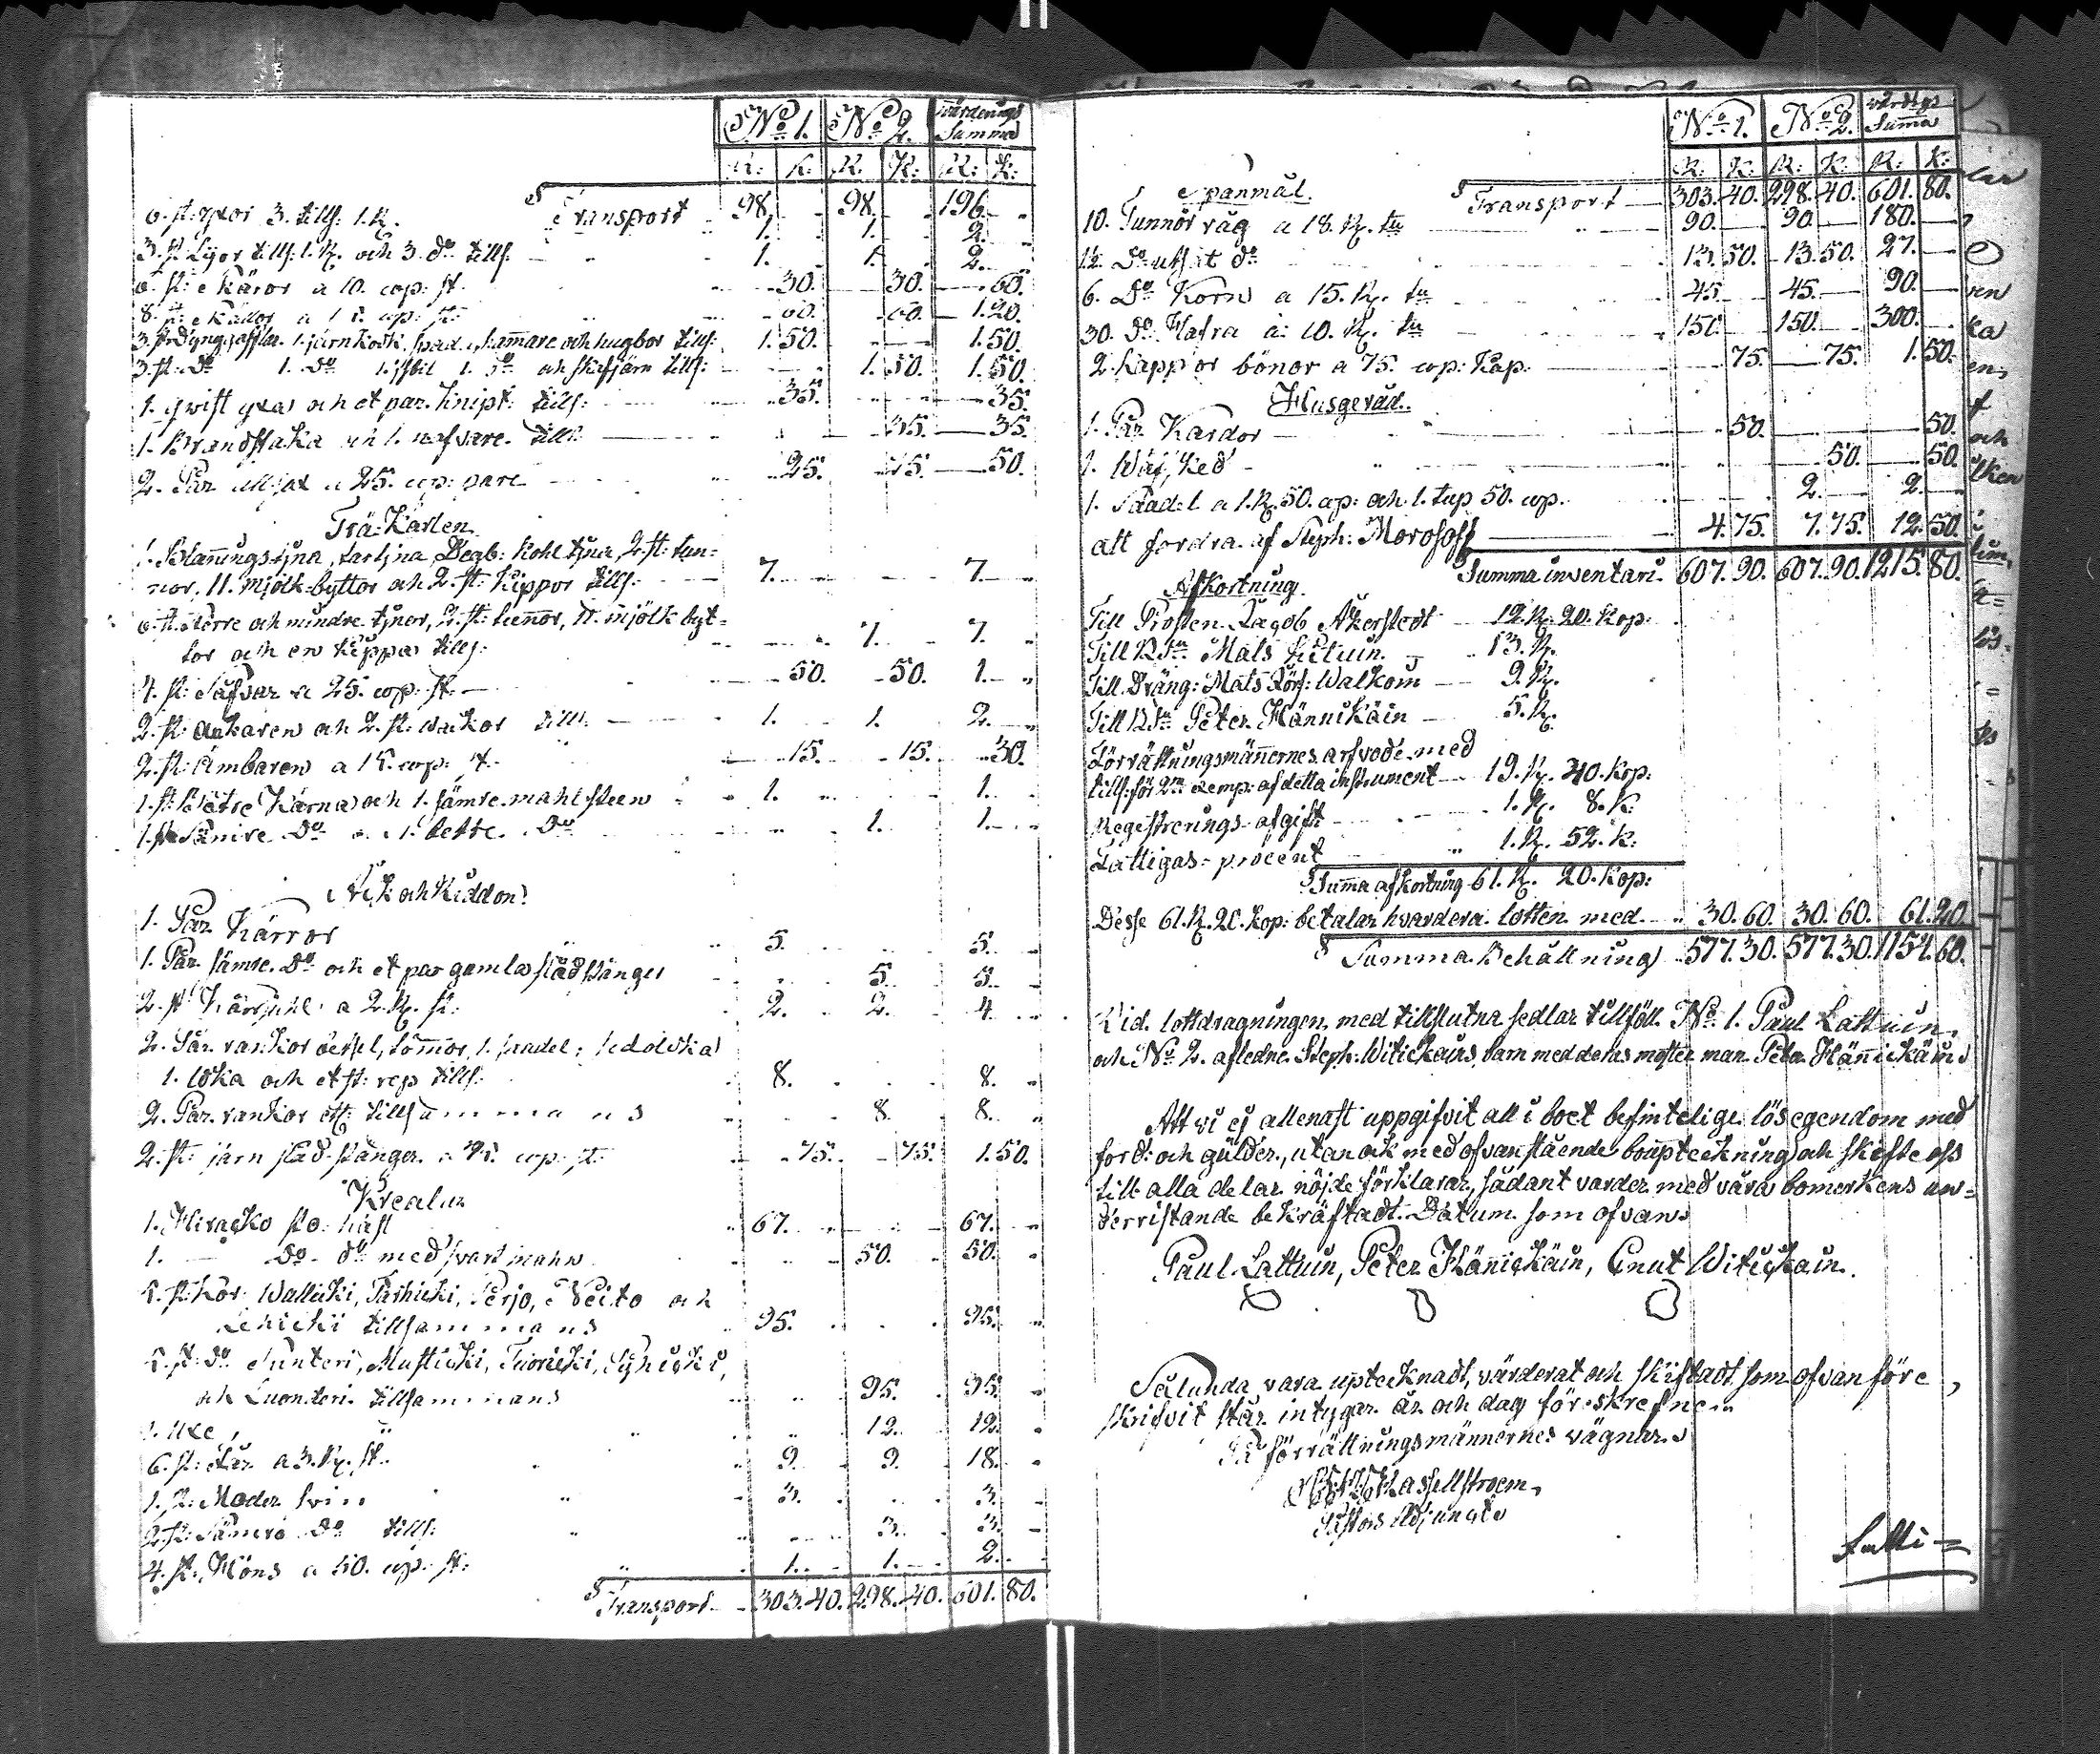 No 1. No 2. Värderings Summa
R: K: R. K: R: K:
Transport 98. 98. 196.
6. st: yxor 3. tills: 1. R. 1. 1. 2.
3. st Lyor tills: 1. R. och 3. do tills 1. 1. 2.
6. st: Skäror a 10. cop: st. 30. 30. 60.
8. st: a 15. cop: st: 60. 60. 1.20.
3. st Dyng 1. järnkock, spad, hammare och hugbor tills: 1.50. 1.50.
3. st: do 1. do 1. do och skafjärn tills: 1.50. 1.50.
1. yxa och et par tills: 35. 35.
1. Brandstaka och 1. nafvare. tills: 35. 35.
2. Par a 25. cop: pare 25. 25. 50.
Trä-Kärlen
1. tyna, tyna Degb: Kohl tyna, 2. st: tun-
nor, 11. mjölk-byttor och 2. st: Kippor tills: 7. 7.
6. st. större och mindre tynor, 2. st: tunnor, mjölk byt-
tor och en Kippa tills: 7. 7.
4. st: Såfvar a 25. cop: st. 50. 50. 1.
2. st: ankaren och 2. st: tills: 1. 1. 2.
2. st: Ämbaren a 15. cop: st. 15. 15. 30.
1. st: Bättre Kärna och 1. sämre mahlsteen 1. 1.
1. st Sämre do a 1. bette. do 1. 1.
Åk och Riddon
1. Par Kärror 5. 5.
1. Par sämre. do och et par gamla stängei 5. 5.
2. st a 2. R. st. 2. 2. 4.
2. Par rankor 1. sadel;
1. loka och et st: rep tills: 8. 8.
2. Par rankor etc: tillsammans 8. 8.
2. st: järn stänger. a 75. cop: st: 75. 75. 1.50.
Kreatur
1. Hiracko sto häst 67. 67.
1. do do med svart mahn 50. 50.
5. st: Kor: Wallicki, Perjo, Neito och
tillsammans 95. 95.
5. st: do Sunteri, Musticki,
och Luonteri tillsammans 95. 95.
1. Uxe, 12. 12.
6. st: Får a 3. R. st. 9. 9. 18.
1. st: Moder svin 3. 3.
2. st: Sämre do tills: 3. 3.
4. st. Höns a 50. cop: st: 1. 1. 2.
Transport 303.40. 298.40. 601.80.
No 1. No 2. Värdrgs Summa
R: K: R: K: R: K:
Spanmål. Transport 303.40. 298.40. 601.80.
10. Tunnor råg a 18. R. tn 90. 90. 180.
1½ Do utsåt do 13.50. 13.50. 27.
6. Do Korn a 15. R. tn 45. 45. 90.
30. do Hafra a: 10. R. tn 150. 150. 300.
2. Kappor bönor a 75. cop: Kap. 75. 75. 1.50.
Husgeråd.
1. Par Kardor 50. 50.
1. Wäf sked 50. 50.
1. a 1. R. 50. cop: och 1. tup 50. cop. 2. 2.
att fordra af Steph: Morosoff 4.75. 7.75. 12.50.
Summa inventari. 607.90. 607.90. 1215.80.
Afkortning.
Till Prosten Jacob Åkerstedt 12. R. 20. Kop:
Till Bdn: Mats 13. R.
Till Dräng: Mats Jörs: Walkoin 9. R.
Till Bdn Peter Hännikäin 5. R.
Förrättningsmännernes arfvode med
tills: för 2ne exemp: af detta instrument 19. R. 40. Kop:
Registrerings-afgift 1. R. 8. K:
Fattigas-procent 1. R. 52. K:
Summa afkortning 61. R. 20. Kop:
Desse 61. R. 20. Kop: betalar hvardera lotten med 30.60. 30.60. 61.20
Summa Behållning 577.30. 577.30. 1154.60.
Vid lottdragningen med tillslutna sedlar tillföll No 1. Paul Lattuin,
och No 2. afledne Steph: Witickains barn med deras moster man Peter Hännickäin
Att vi ej allenast uppgifvit all i boet befintelige lösegendom med
ford: och gülder, utan ock med ofvanstående boupteckning och skifte oss
till alla delar nöjde förklarar, sådant varder med våra bomerkens un-
derristande bekräftadt. Datum som ofvan
Paul Lattuin, Peter Hännickäin, Cnut Witickain.
Sålunda vara uptecknadt, värderat och skiftadt som ofvanföre
skrifvit står intygar år och dag föreskrefne
På förrättningsmännernes vägnar
Hassellstroem,
Pastors Adjunct
Latti=